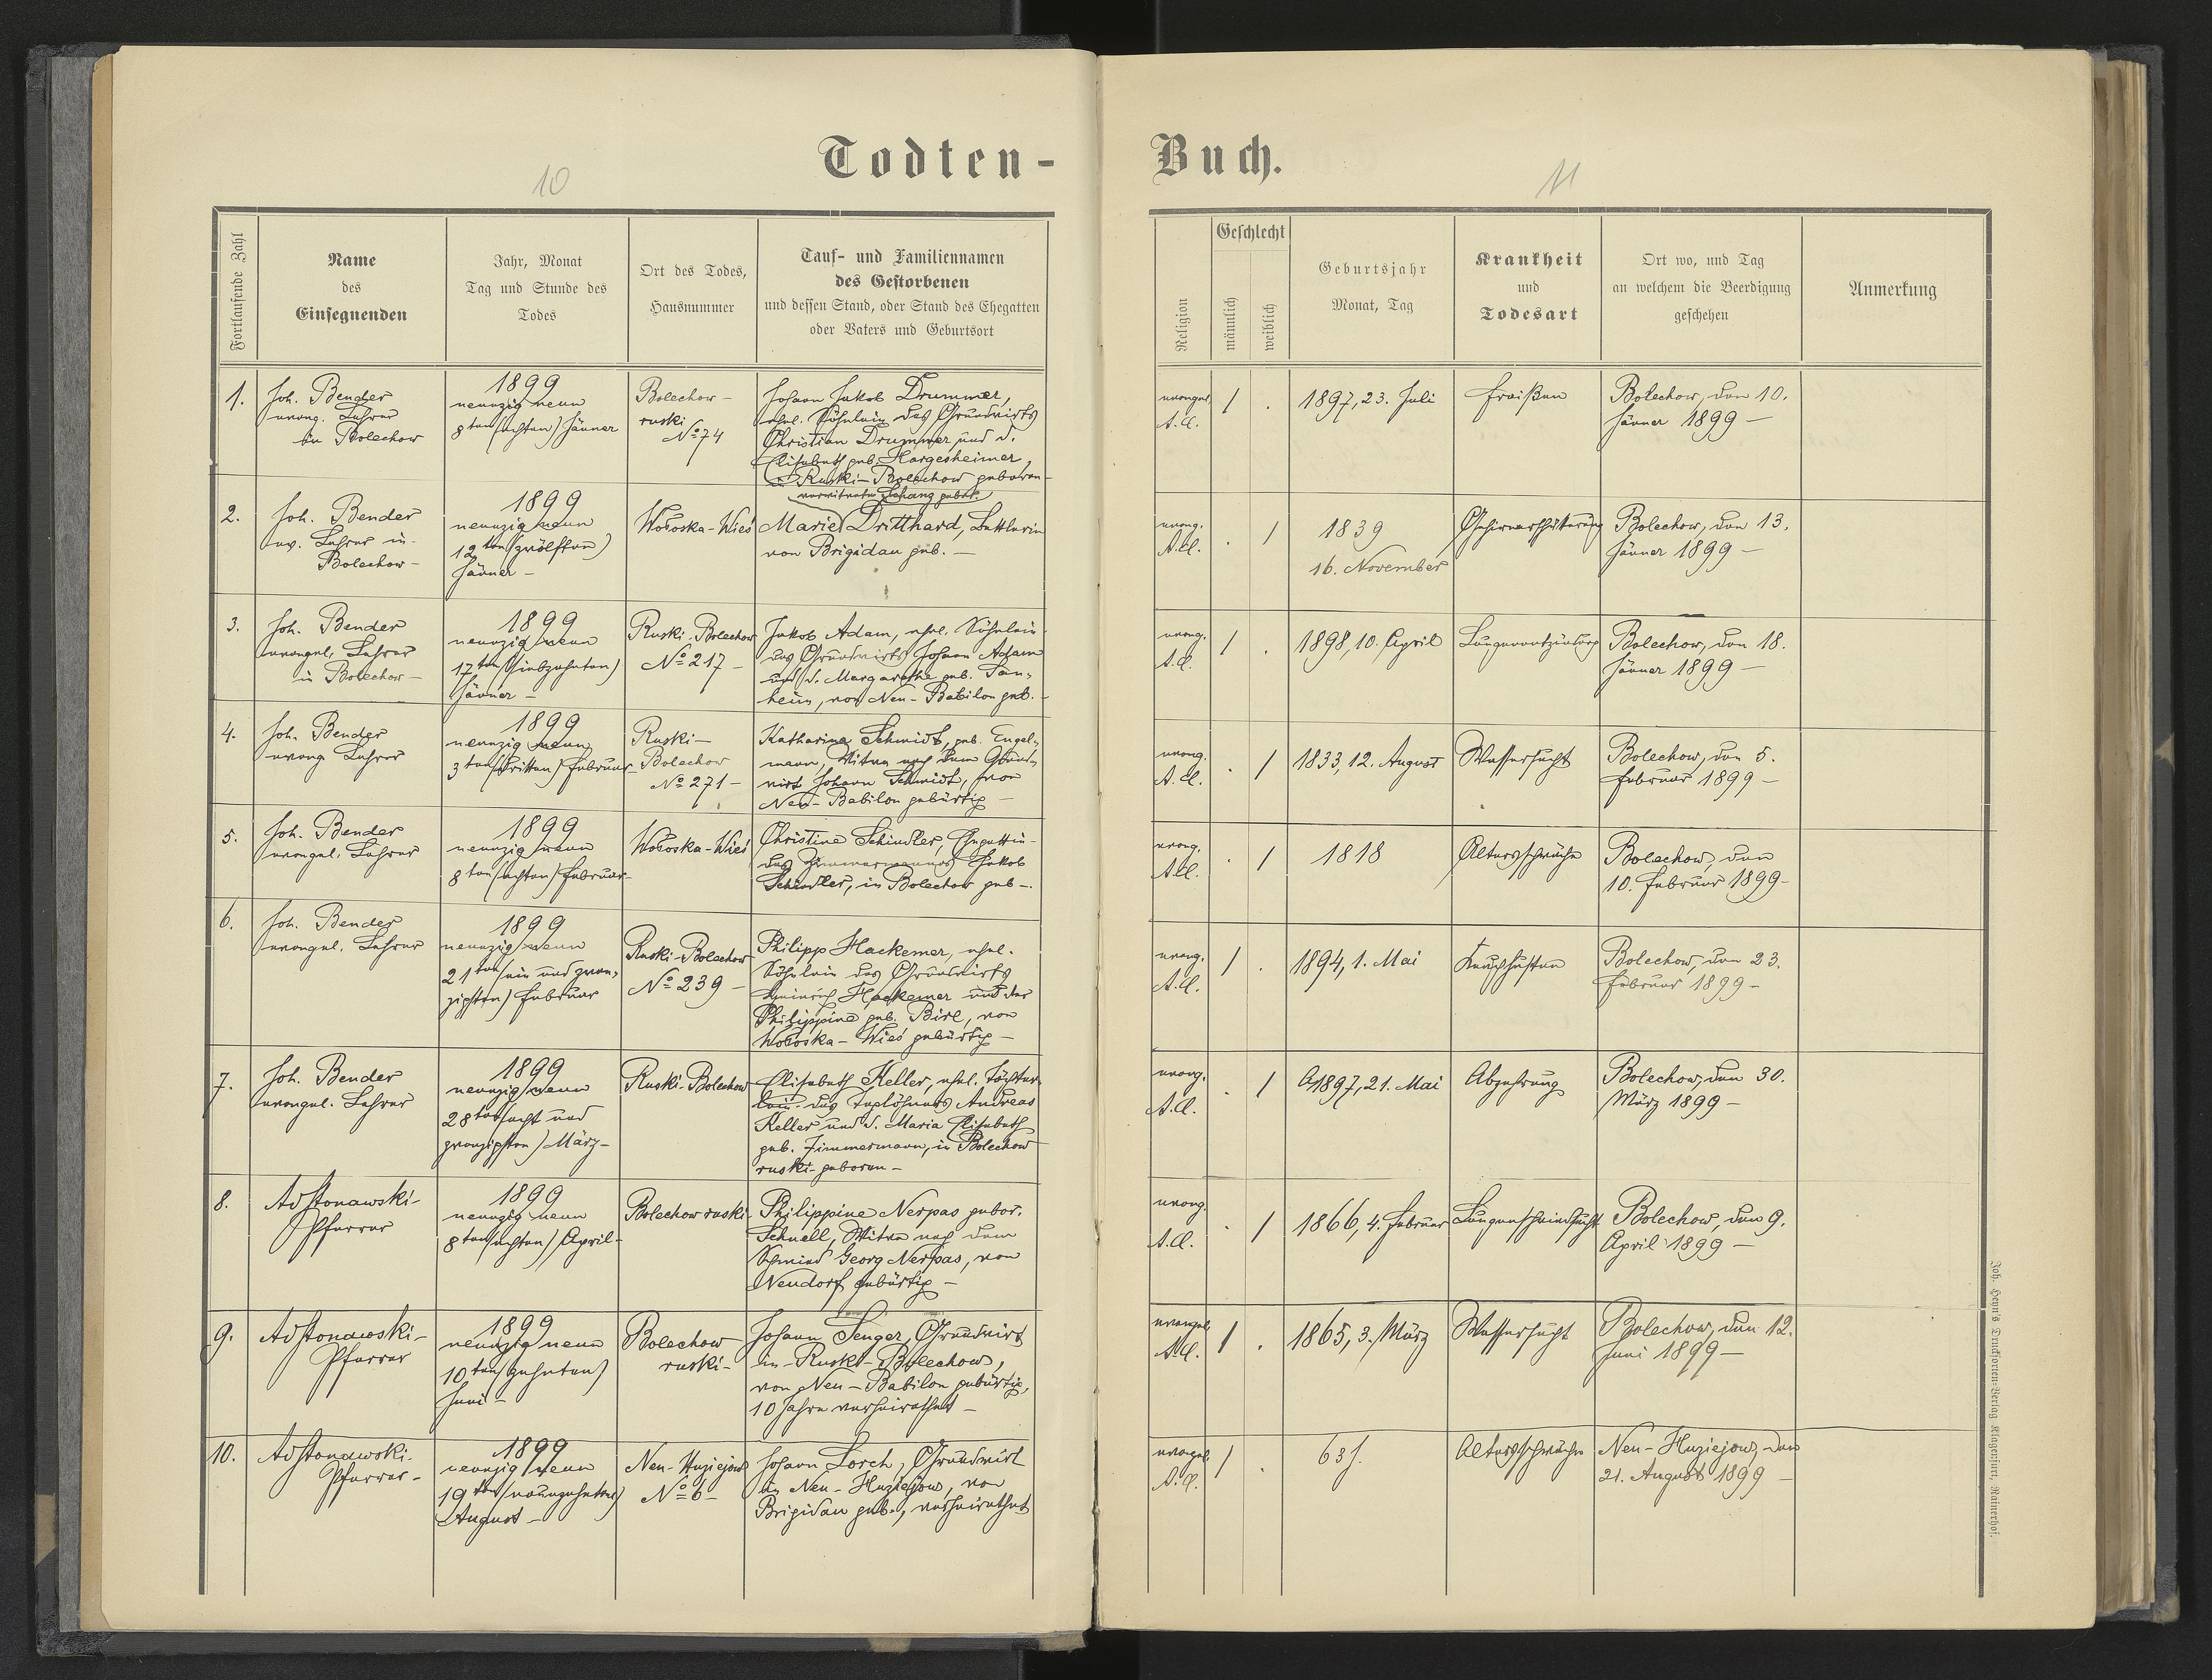 Todten-
Buch.
10
11
Fortlaufende Zahl
Name
des
Einsegnenden
Jahr, Monat
Tag und Stunde des
Todes
Ort des Todes,
Hausnummer
Tauf- und Familiennamen
des Gestorbenen
und dessen Stand, oder Stand des Ehegatten
oder Vaters und Geburtsort
Religion
Geschlecht
männlich
weiblich
Geburtsjahr
Monat, Tag
Krankheit
und
Todesart
Ort wo, und Tag
an welchem die Beerdigung
geschehen
Anmerkung
1.
Joh. Bender
evang. Lehrer
in Bolechow
1899
neunzig neun
8ten (achten) Jänner
Bolechow -
ruski
No 74
Johann Jakob Drummer,
ehel. Söhnlein des Grundwirts
Christian Drummer und d.
Elisabeth geb. Hargesheimer,
in Ruski-Bolechow geboren -
evangel.
A.C.
/ .
1897, 23. Juli
Fraißen
Bolechow, den 10.
Jänner 1899 -
2.
Joh. Bender
ev. Lehrer in
Bolechow -
1899
neunzig neun
12ten (zwölften)
Jänner -
Wołoska-Wieś
verwitwete Schang gebor.
Marie Dritthard, Bettlerin
von Brigidau geb. -
evang.
A.C.
. /
1839
16. November
Gehirnerschütterung
Bolechow, den 13.
Jänner 1899 -
3.
Joh. Bender
evangel. Lehrer
in Bolechow -
1899
neunzig neun
17ten (siebzehnten)
Jänner -
Ruski-Bolechow
No 217 -
Jakob Adam, ehel. Söhnlein
des Grundwirts Johann Adam
und d. Margarethe geb. Tan-
heim, von Neu-Babilon geb. -
evang.
A.C.
/ .
1898, 10. April
Lungenentzündung
Bolechow, den 18.
Jänner 1899 -
4.
Joh. Bender
evang Lehrer
1899
neunzig neun
3ten (dritten) Februar
Ruski-
Bolechow
No 271 -
Katharina Schmidt, geb. Engel-
mann, Witwe nach dem Grund-
wirt Johann Schmidt, von
Neu-Babilon gebürtig -
evang.
A.C.
. /
1833, 12. August
Wassersucht
Bolechow, den 5.
Februar 1899 -
5.
Joh. Bender
evangel. Lehrer
1899
neunzig neun
8ten (achten) Februar -
Wołoska-Wieś
Christine Schindler, Ehegattin
des Zimmermannes Jakob
Schindler, in Bolechow geb -.
evang.
A.C.
. /
1818
Altersschwäche
Bolechow, den
10. Februar 1899 -
6.
Joh. Bender
evangel. Lehrer
1899
neunzig neun
21ten (ein und zwan-
zigsten) Februar
Ruski-Bolechow
No 239 -
Philipp Hackemer, ehel.
Söhnlein des Grundwirts
Heinrich Hackemer und der
Philippine geb. Birl, von
Wołoska-Wieś gebürtig -
evang.
A.C.
/ .
1894, 1. Mai
Keuchhusten
Bolechow, den 23.
Februar 1899 -
7.
Joh. Bender
evangel. Lehrer
1899
neunzig neun
28ten (acht und
zwanzigsten) März -
Ruski-Bolechow
Elisabeth Keller, ehel. Töchter-
lein des Taglöhners Andreas
Keller und d. Maria Elisabeth
geb. Zimmermann, in Bolechow
ruski geboren -
evang.
A.C.
. /
1897, 21. Mai
Abzehrung
Bolechow, den 30.
März 1899 -
8.
Pfarrer
1899
neunzig neun
8ten (achten) April -
Bolechow ruski -
Philippine Nerpas gebor.
Schnell, Witwe nach dem
Schmied Georg Nerpas, von
Neudorf gebürtig -
evang.
A.C.
. /
1866, 4. Februar
Lungenschwindsucht
Bolechow, den 9.
April 1899 -
9.
Pfarrer
1899
neunzig neun
10ten (zehnten)
Juni -
Bolechow
ruski -
Johann Senger, Grundwirt
in Ruski-Bolechow,
von Neu-Babilon gebürtig,
10 Jahre verheirathet -
evangel.
A.C.
/ .
1865, 3. März
Wassersucht
Bolechow, den 12.
Juni 1899 -
10.
Pfarrer -
1899
neunzig neun
19ten (neunzehnten)
August -
Neu-Huziejow
No 6 -
Johann Lorch, Grundwirt
in Neu-Huziejow, von
Brigidau geb., verheirathet
evangel.
A.C.
/ .
63 J.
Altersschwäche
Neu-Huziejow, den
21. August 1899 -
Joh. Heyn's Drucksorten-Verlag Klagenfurt, Rainerhof.